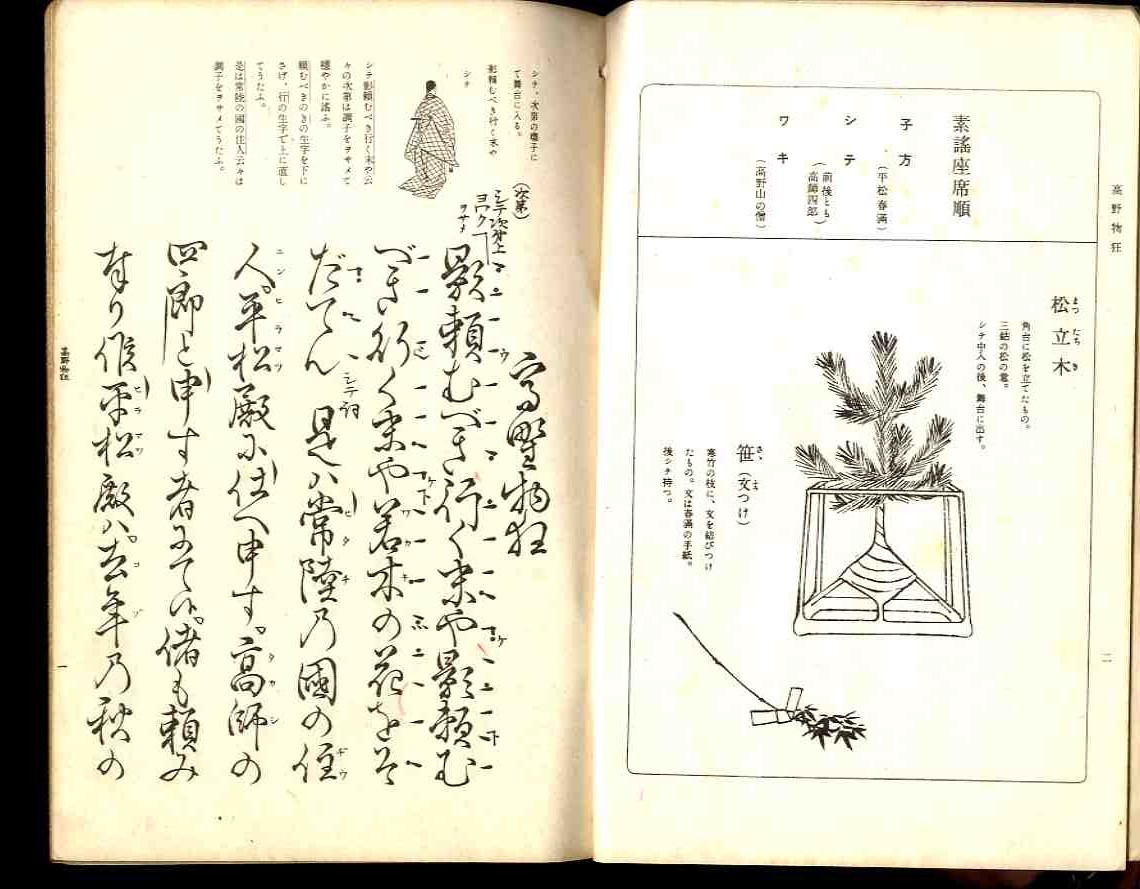 高野物狂
素謡座席順
子方
(平松春満)
シテ
(前後とも
高師四郎)
ワキ
(高野山の僧)
松立木
まつ たち き
角台に松を立てたもの。
三鈷の松の意。
シテ中入の後、舞台に出す。
笹(文つけ)
寒竹の枝に、文を結びつけ
たもの。文は春満の手紙。
後シテ持つ。
二
シテ、次第の囃子に
て舞台に入る。
影頼むべき行く末や
シテ
シテ影頼むべき行く末や云
々の次第は調子をヲサメて
穏やかに謡ふ。
頼むべきのきの生字を下に
さげ、行の生字で上に直し
てうたふ。
是は常陸の國の住人云々は
調子をヲサメてうたふ。
高野物狂
(次第)
シテ次第上
ヨワク
ヲサメ
影頼むべき行く末や影頼む
べき行く末や若木の花をそ
だてん シテ詞 是ハ常陸乃國の住
人。平松殿に仕へ申す。高師の
四郎と申す者にて候。偖も頼み
奉り候平松殿ハ。去年乃秋の
高野物狂
一